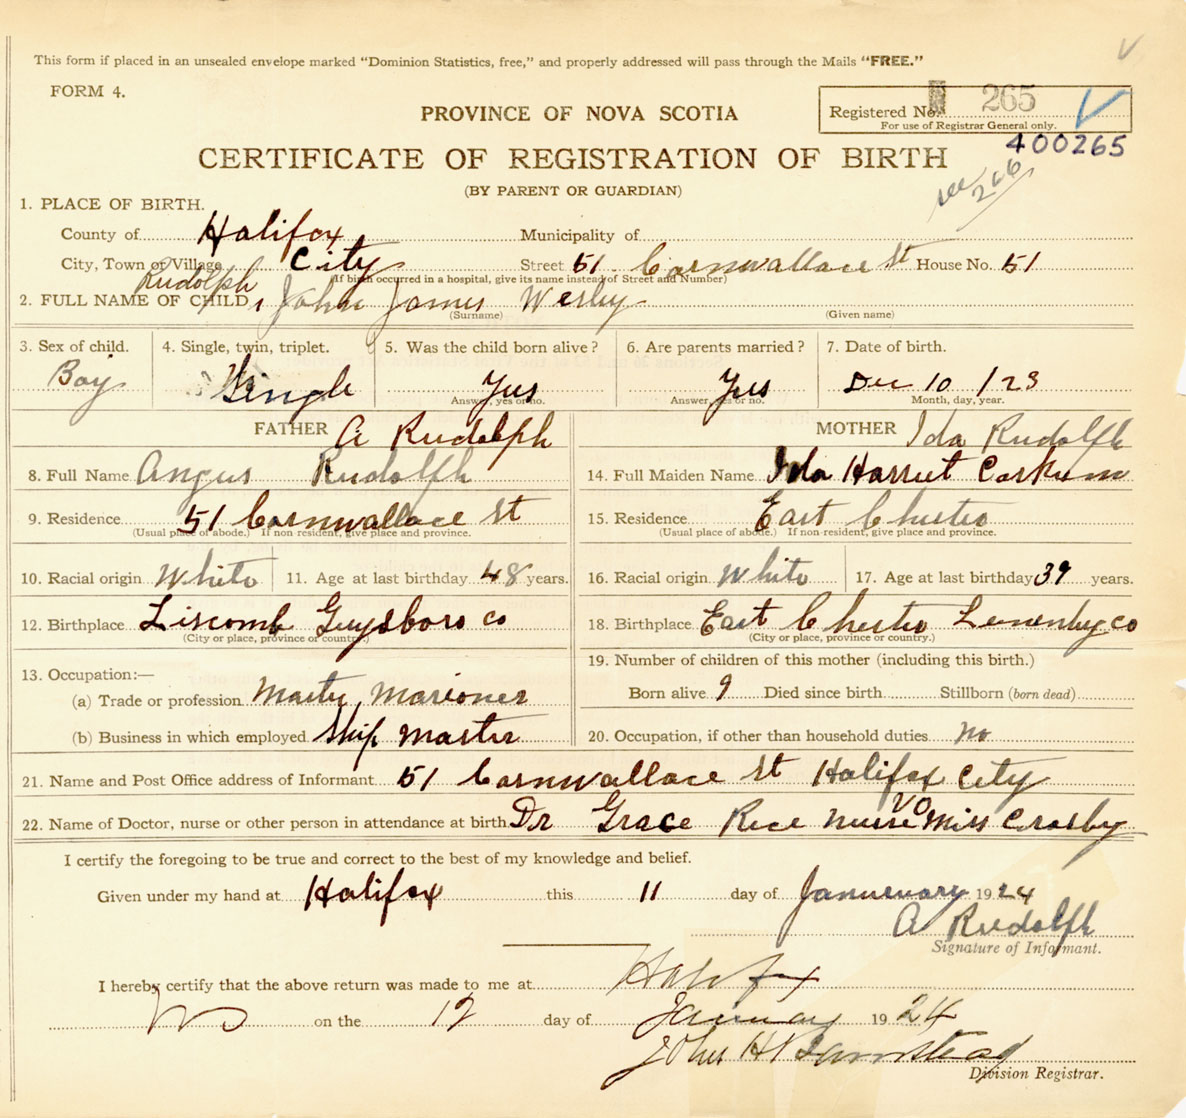 This form if placed in an unsealed envelope marked "Dominion Statistics, free," and properly addressed will pass through the Mails "FREE."
FORM 4.
PROVINCE OF NOVA SCOTIA
Registered No. 265
For use of Registrar General only.
400265
CERTIFICATE OF REGISTRATION OF BIRTH
see 266
(BY PARENT OR GUARDIAN)
1. PLACE OF BIRTH.
County of Halifox Municipality of
City, Town or Village City Street 51 Cornwallace St House No. 51
(If birth occurred in a hospital, give its name instead of Street and Number)
2. FULL NAME OF CHILD Rudolph, John James Wesley
(Surname) (Given name)
3. Sex of child. 4. Single, twin, triplet. 5. Was the child born alive? 6. Are parents married? 7. Date of birth.
Boy Single Yes Yes Dec 10 /23
Answer, yes or no. Answer, yes or no. Month, day, year.
FATHER A Rudolph MOTHER Ida Rudolph
8. Full Name Angus Rudolph 14. Full Maiden Name Ida Harriet Corkum
9. Residence 51 Cornwallace St 15. Residence East Chester
(Usual place of abode.) If non-resident, give place and province. (Usual place of abode.) If non-resident, give place and province.
10. Racial origin White 11. Age at last birthday 48 years. 16. Racial origin White 17. Age at last birthday 39 years.
12. Birthplace Liscomb Guysboro Co 18. Birthplace East Chester Lunenbg Co
(City or place, province or country.) (City or place, province or country.)
13. Occupation:— 19. Number of children of this mother (including this birth.)
(a) Trade or profession Master Marioner Born alive 9 Died since birth Stillborn (born dead)
(b) Business in which employed Ship Master 20. Occupation, if other than household duties No
21. Name and Post Office address of Informant 51 Cornwallace St Halifox City
22. Name of Doctor, nurse or other person in attendance at birth Dr Grace Rice Nurse VO Miss Crosby
I certify the foregoing to be true and correct to the best of my knowledge and belief.
Given under my hand at Halifox this 11 day of Januerary 1924
A Rudolph
Signature of Informant.
I hereby certify that the above return was made to me at Halifax
NS on the 12 day of January 1924
John H Barnstead
Division Registrar.